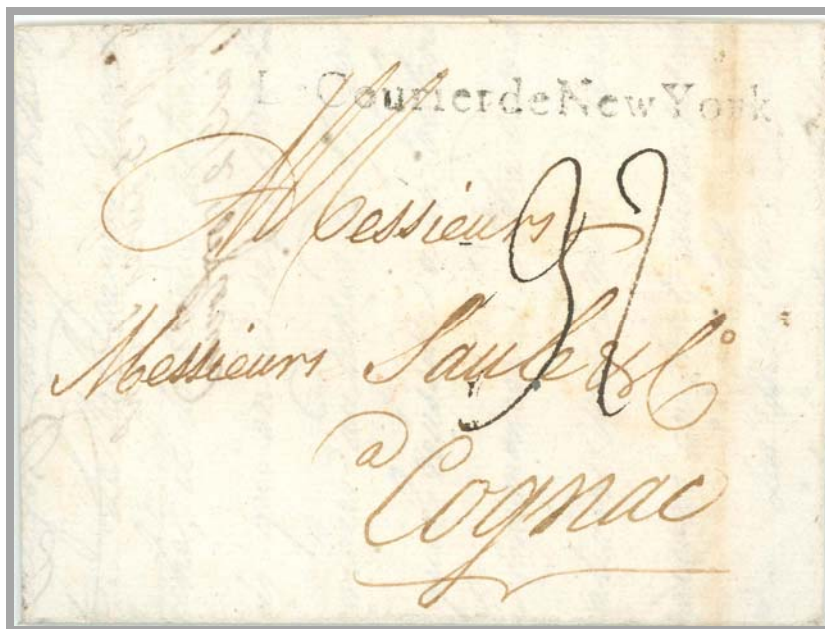 Le CourierdeNewYork
A Messieurs
Messieurs Saule & Cº
a Cognac